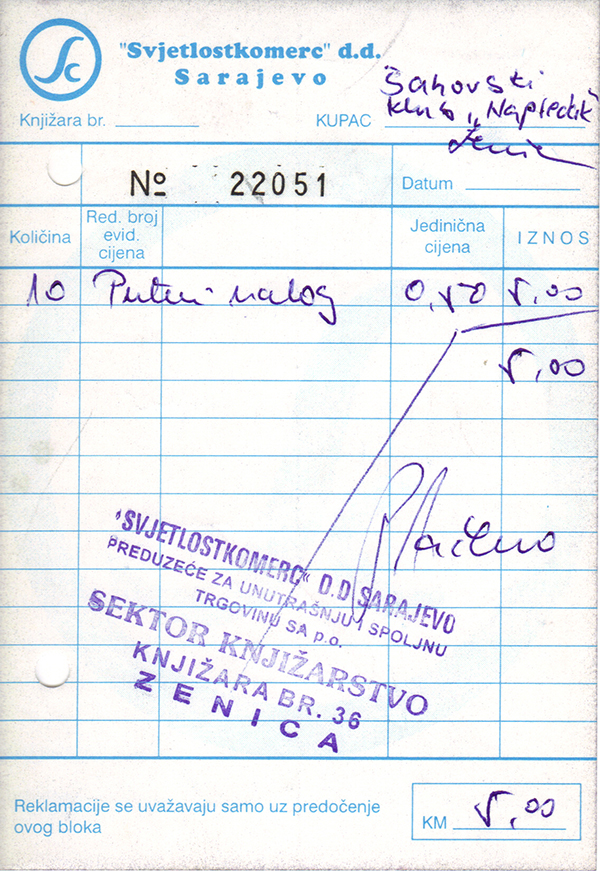 Sc
"Svjetlostkomerc" d.d.
Sarajevo
Knjižara br.
KUPAC Šahovski
klub „Napredak"
Zenica
№ 22051
Datum
Količina
Red. broj
evid.
cijena
Jedinična
cijena
IZNOS
10 Putni nalog 0,50 5,00
5,00
Plaćeno
"SVJETLOSTKOMERC" D.D. SARAJEVO
PREDUZEĆE ZA UNUTRAŠNJU I SPOLJNU
TRGOVINU SA p.o.
SEKTOR KNJIŽARSTVO
KNJIŽARA BR. 36
ZENICA
Reklamacije se uvažavaju samo uz predočenje
ovog bloka
KM 5,00